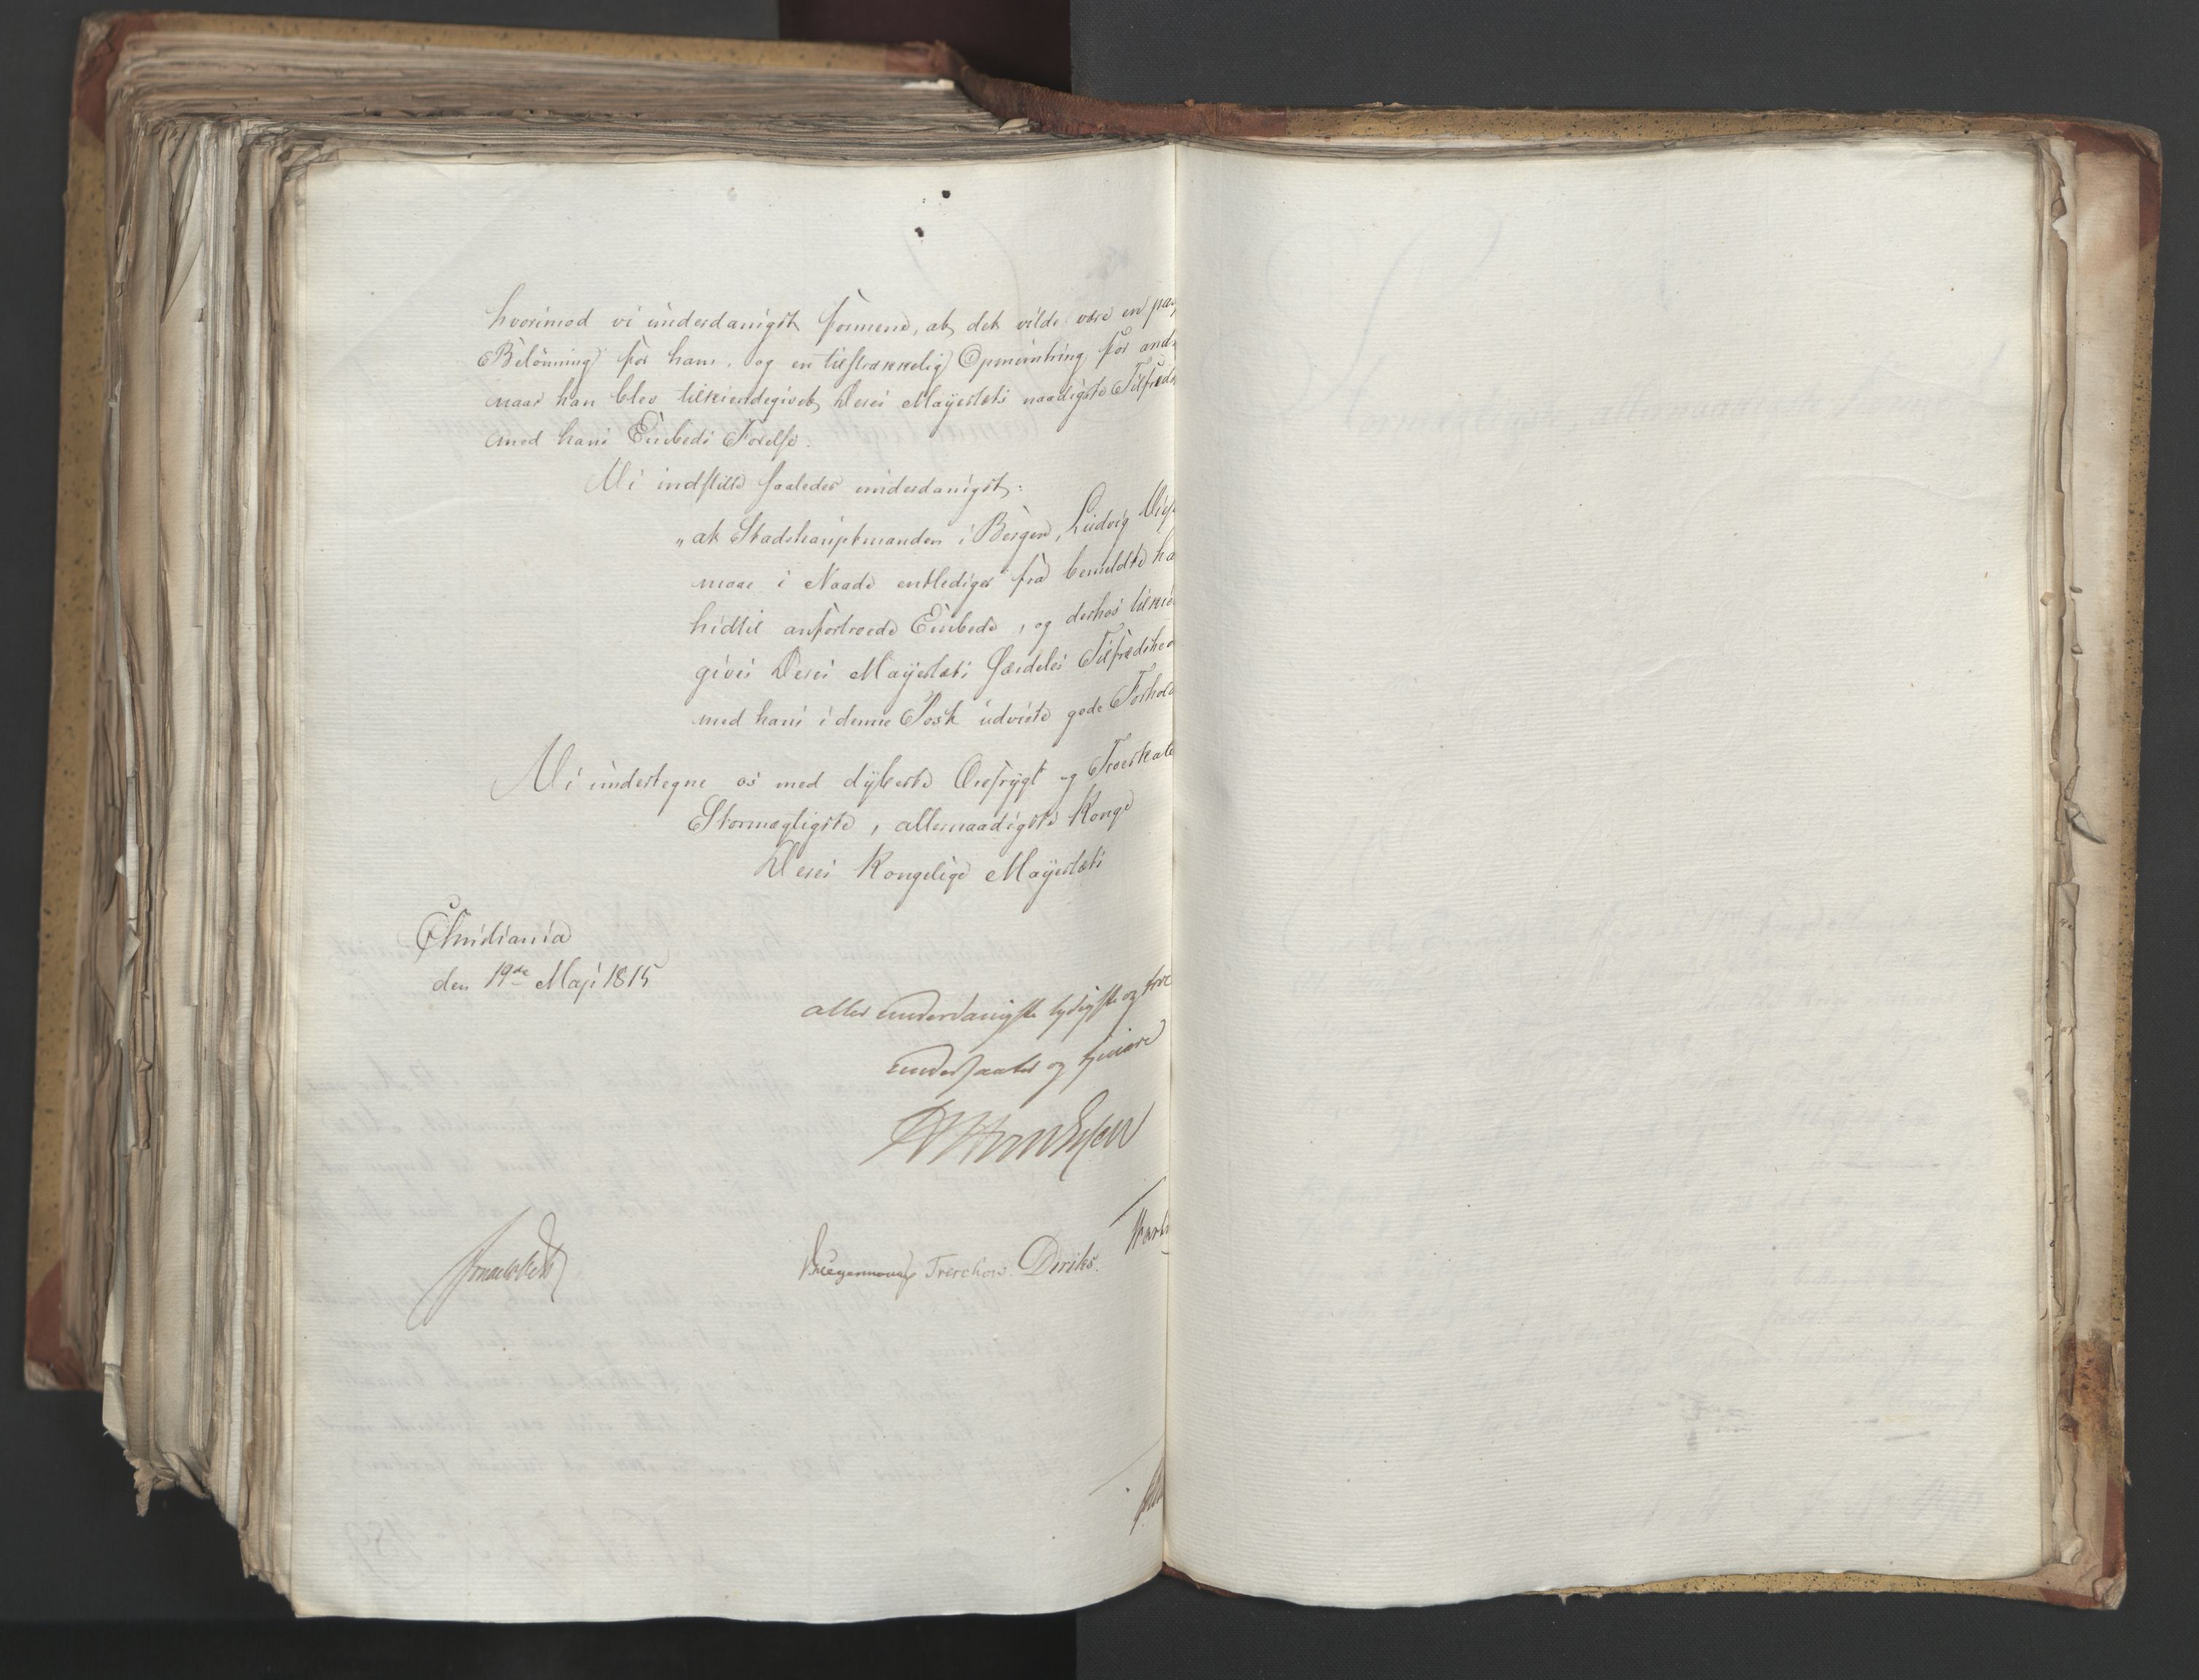 hvorimod vi underdanigst formene, at det vilde være en pas
Belönning for ham, og en tilstrækkelig Opmuntring for and
naar han blev tilkiendegivet Deres Mayestæts naadigste Tilfreds
med hans Embeds Förelse.
Vi indstille saaledes underdanigst:
"at Stadshauptmanden i Bergen, Ludvig
maae i Naade entlediges fra bemeldte ha
hidtil anfortroede Embede, og derhos tilkie
gives Deres Mayestæts særdeles Tilfredshed
med hans i denne Post udviste gode Forhold
Vi undertegne os med dybeste Ærefrygt og Troeskab
Stormægtigste, allernaadigste Konge
Deres Kongelige Mayestæts
Christiania
den 19de Maji 1815
allerunderdanigste lydigste og troe
undersaatter og tjenere
Treschow. Diriks.